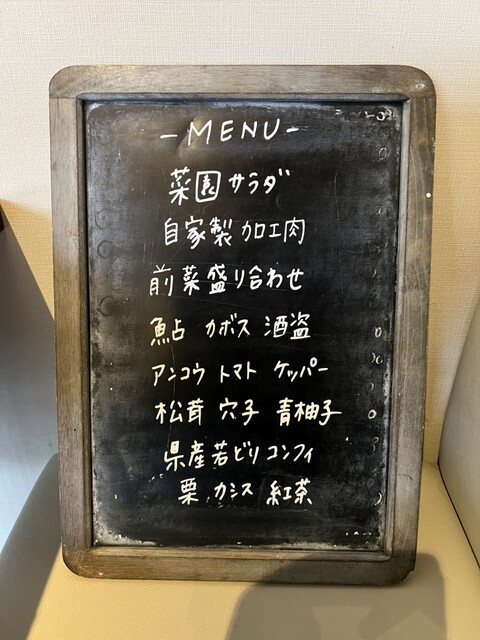 -MENU-
菜園サラダ
自家製加工肉
前菜盛り合わせ
鮎 カボス 酒盗
アンコウ トマト ケッパー
松茸 穴子 青柚子
県産若どりコンフィ
栗 カシス 紅茶